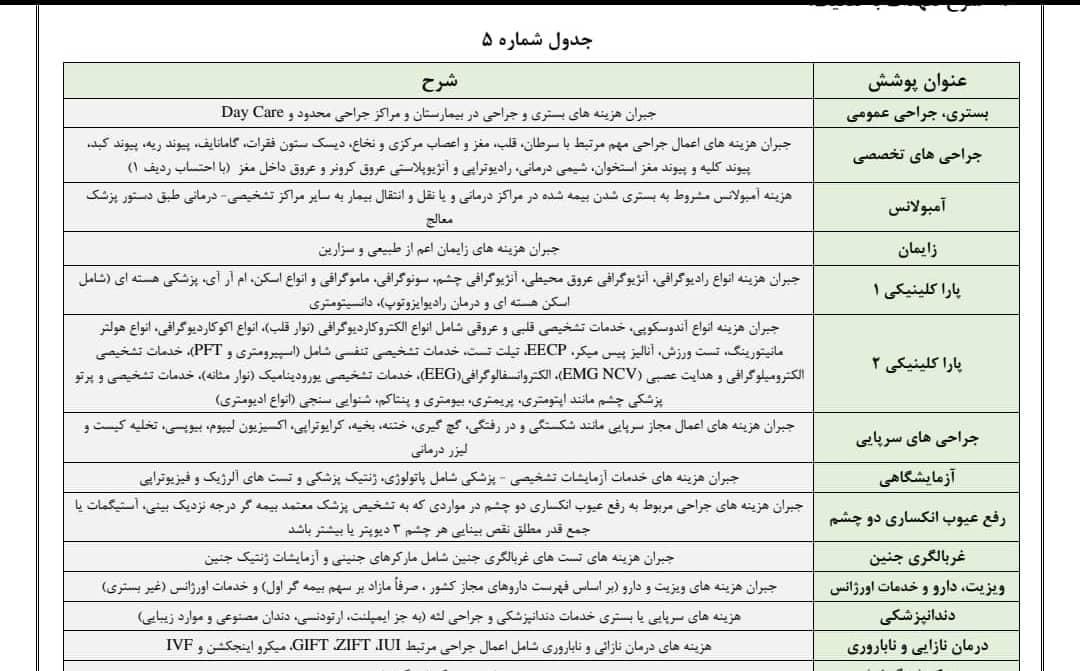 جدول شماره ۵
عنوان پوشش
شرح
بستری، جراحی عمومی
جبران هزینه های بستری و جراحی در بیمارستان و مراکز جراحی محدود و Day Care
جراحی های تخصصی
جبران هزینه های اعمال جراحی مهم مرتبط با سرطان، قلب، مغز و اعصاب مرکزی و نخاع، دیسک ستون فقرات، گامانایف، پیوند ریه، پیوند کبد،
پیوند کلیه و پیوند مغز استخوان، شیمی درمانی، رادیوتراپی و آنژیوپلاستی عروق کرونر و عروق داخل مغز (با احتساب ردیف ۱)
آمبولانس
هزینه آمبولانس مشروط به بستری شدن بیمه شده در مراکز درمانی و یا نقل و انتقال بیمار به سایر مراکز تشخیصی- درمانی طبق دستور پزشک
معالج
زایمان
جبران هزینه های زایمان اعم از طبیعی و سزارین
پارا کلینیکی ۱
جبران هزینه انواع رادیوگرافی، آنژیوگرافی عروق محیطی، آنژیوگرافی چشم، سونوگرافی، ماموگرافی و انواع اسکن، ام آر آی، پزشکی هسته ای (شامل
اسکن هسته ای و درمان رادیوایزوتوپ)، دانسیتومتری
پارا کلینیکی ۲
جبران هزینه انواع آندوسکوپی، خدمات تشخیصی قلبی و عروقی شامل انواع الکتروکاردیوگرافی (نوار قلب)، انواع اکوکاردیوگرافی، انواع هولتر
مانیتورینگ، تست ورزش، آنالیز پیس میکر، EECP، تیلت تست، خدمات تشخیصی تنفسی شامل (اسپیرومتری و PFT)، خدمات تشخیصی
الکترومیلوگرافی و هدایت عصبی (EMG NCV)، الکتروانسفالوگرافی(EEG)، خدمات تشخیصی یورودینامیک (نوار مثانه)، خدمات تشخیصی و پرتو
پزشکی چشم مانند اپتومتری، پریمتری، بیومتری و پنتاکم، شنوایی سنجی (انواع ادیومتری)
جراحی های سرپایی
جبران هزینه های اعمال مجاز سرپایی مانند شکستگی و در رفتگی، گچ گیری، ختنه، بخیه، کرایوتراپی، اکسیزیون لیپوم، بیوپسی، تخلیه کیست و
لیزر درمانی
آزمایشگاهی
جبران هزینه های خدمات آزمایشات تشخیصی - پزشکی شامل پاتولوژی، ژنتیک پزشکی و تست های آلرژیک و فیزیوتراپی
رفع عیوب انکساری دو چشم
جبران هزینه های جراحی مربوط به رفع عیوب انکساری دو چشم در مواردی که به تشخیص پزشک معتمد بیمه گر درجه نزدیک بینی، آستیگمات یا
جمع قدر مطلق نقص بینایی هر چشم ۳ دیوپتر یا بیشتر باشد
غربالگری جنین
جبران هزینه های تست های غربالگری جنین شامل مارکرهای جنینی و آزمایشات ژنتیک جنین
ویزیت، دارو و خدمات اورژانس
جبران هزینه های ویزیت و دارو (بر اساس فهرست داروهای مجاز کشور ، صرفاً مازاد بر سهم بیمه گر اول) و خدمات اورژانس (غیر بستری)
دندانپزشکی
هزینه های سرپایی یا بستری خدمات دندانپزشکی و جراحی لثه (به جز ایمپلنت، ارتودنسی، دندان مصنوعی و موارد زیبایی)
درمان نازایی و ناباروری
هزینه های درمان نازائی و ناباروری شامل اعمال جراحی مرتبط GIFT ،ZIFT ،IUI، میکرو اینجکشن و IVF